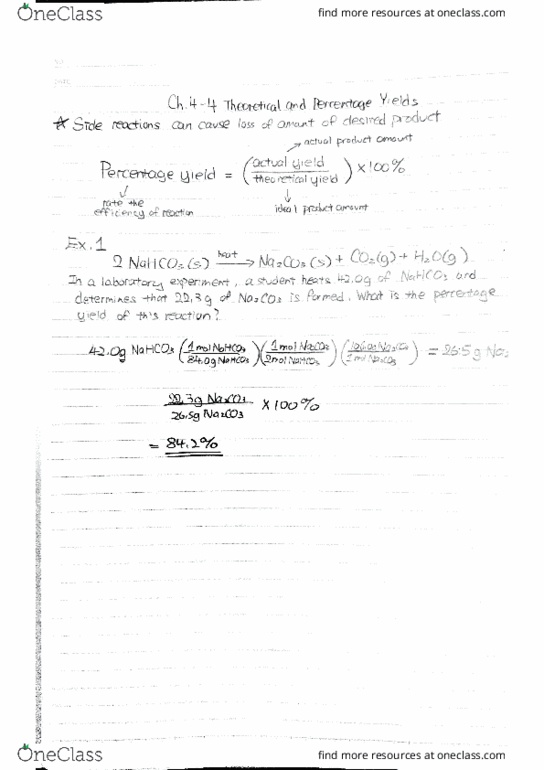 OneClass find more resources at oneclass.com
Ch.4-4 Theoretical and Percentage Yields
* Side reactions can cause loss of amount of desired product
→ actual product amount
Percentage yield = (actual yield / theoretical yield) × 100%
↓ rate the efficiency of reaction
↓ ideal product amount
Ex.1
2 NaHCO₃(s) heat→ Na₂CO₃(s) + CO₂(g) + H₂O(g)
In a laboratory experiment, a student heats 42.0g of NaHCO₃ and
determines that 22.3g of Na₂CO₃ is formed. What is the percentage
yield of this reaction?
42.0g NaHCO₃ (1 mol NaHCO₃ / 84.0g NaHCO₃) (1 mol Na₂CO₃ / 2 mol NaHCO₃) ( Na₂CO₃ / 1 mol Na₂CO₃) = 26.5g Na₂
22.3g Na₂CO₃ / 26.5g Na₂CO₃ × 100%
= 84.2%
OneClass find more resources at oneclass.com